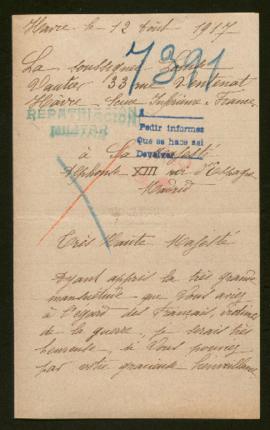 Havre le 12 Août 1917
7391
La soussignée Louise
Vautier 33 rue Ventenat
Havre Seine Inférieure France
REPATRIACIÓN
MILITAR
Pedir informes
Que se hace así
Devolver
à Sa Majesté
Alphonse XIII roi d'Espagne
Madrid
Très Haute Majesté
Ayant appris la très grande
mansuétude que Vous aviez
à l'égard des Français, victimes
de la guerre, je serais très
heureuse, si Vous pouviez
par votre gracieuse bienveillance